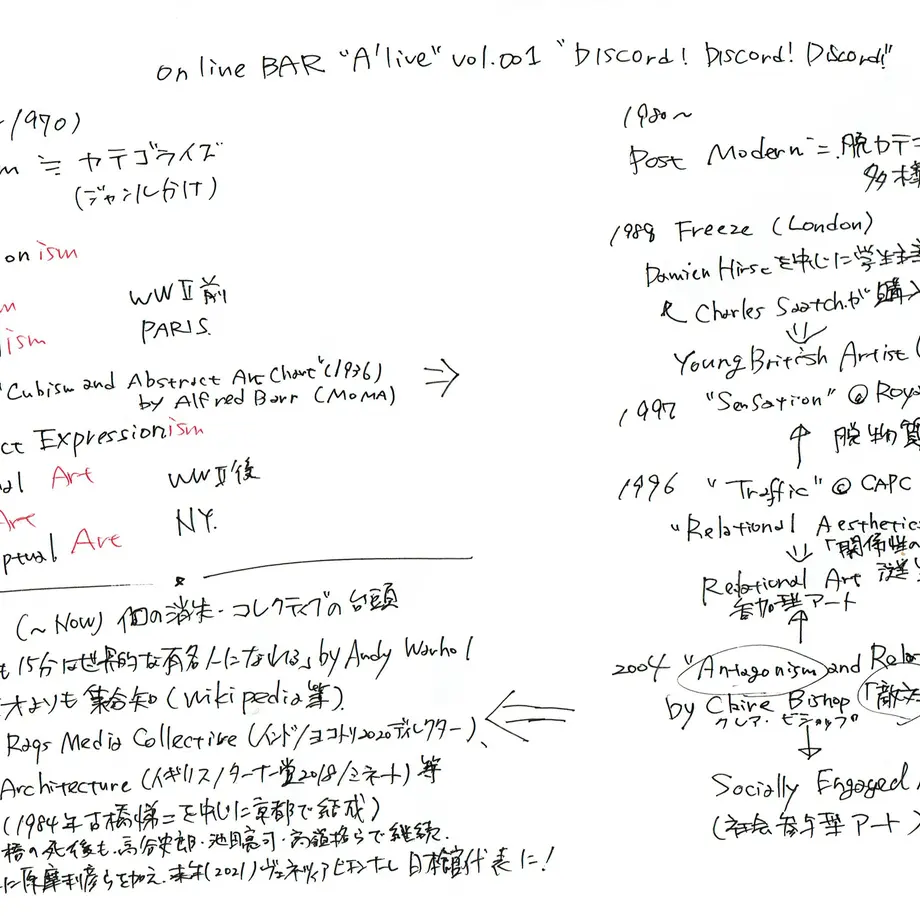 online BAR "A'live" vol.001 "Discord! Discord! Discord!"
1970)
m ≒ カテゴライズ
(ジャンルわけ)
onism
m
ism
WWⅡ前
PARIS.
"Cubism and Abstract Art Chart" (1936)
by Alfred Barr (MoMA)
⇒
ct Expressionism
al Art
Art
ptual Art
WWⅡ後
NY.
(~Now) 個の消失・コレクティブの台頭
も15分は世界的な有名人になれる」by Andy Warhol
才よりも集合知(wikipedia等)
Raqs Media Collective (インド/ヨコトリ2020ディレクター)、
Architecture (イギリス/ターナー賞2018/ミネート)等
(1984年古橋悌二を中心に京都で結成)
橋の死後も、高谷史郎・池田亮司・高嶺格らで継続.
に原摩利彦らを加え、来年(2021)ヴェネツィアビエンナーレ日本館代表に!
1980~
Post Modern = 脱カテゴ
多様
1988 Freeze (London)
Damien Hirst を中心に学生主
& Charles Saatchiが購入
⇓
Young British Artist (
1997 "Sensation" @ Roya
↑ 脱物質
1996 "Traffic" @ CAPC
"Relational Aesthetics
「関係性の
⇓
Relational Art 誕生
参加型アート
↑
2004 "Antagonism and Relat
by Claire Bishop 「敵対
クレア・ビショップ
↓
Socially Engaged A
(社会参与型アート)